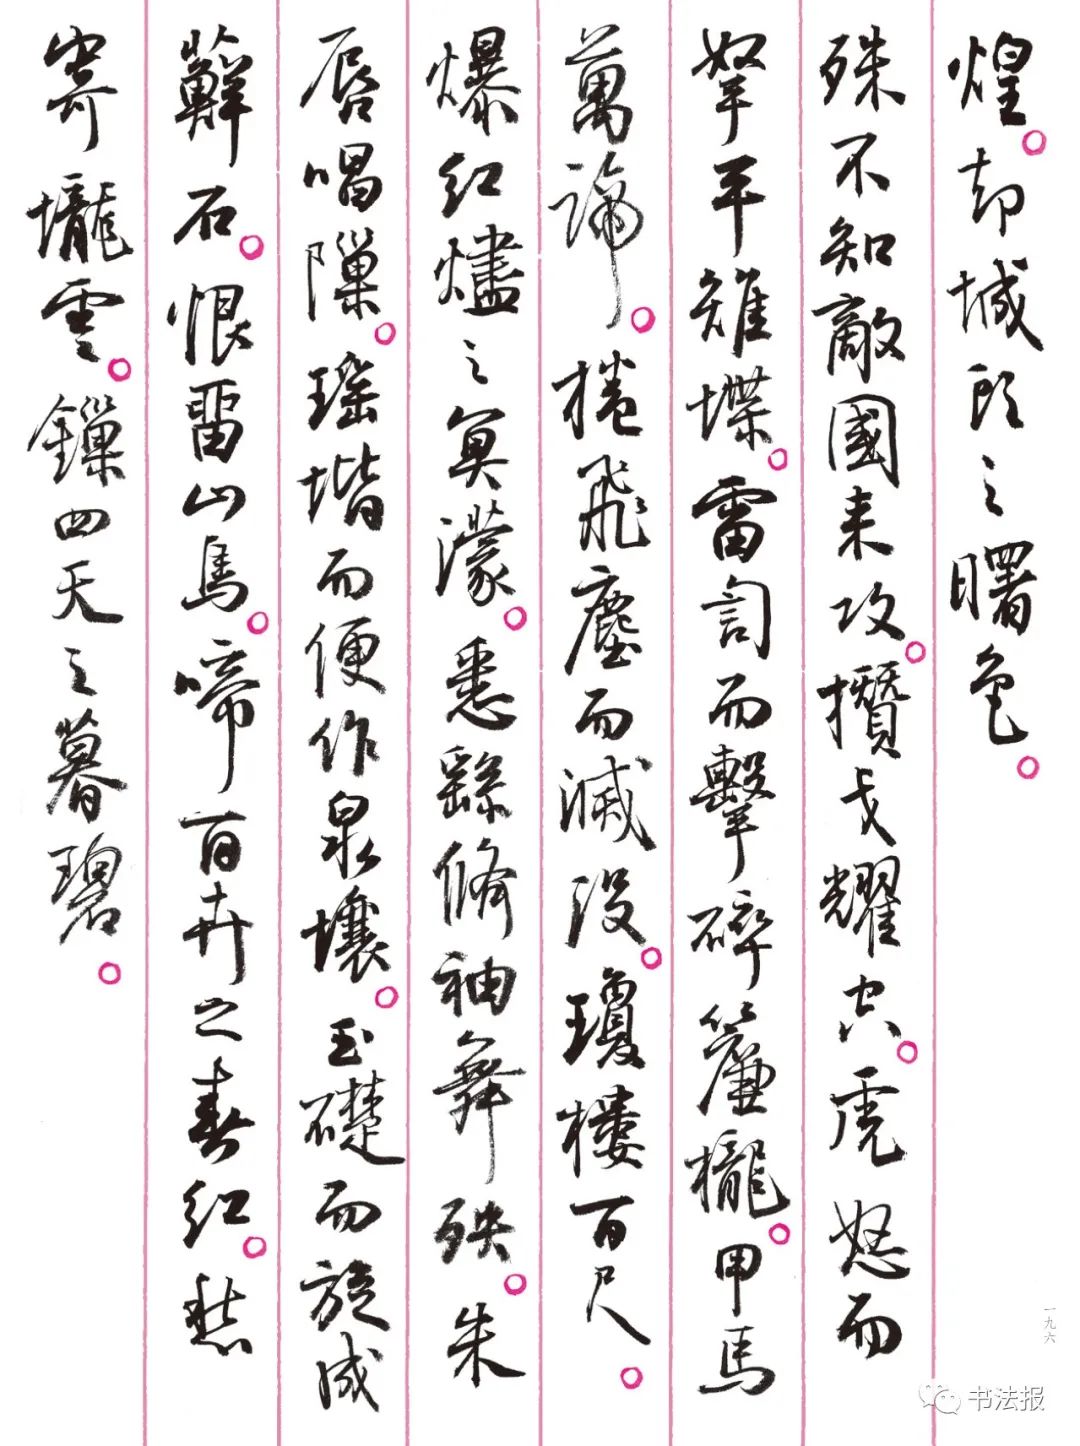 煌。却城頭之曙色。
殊不知敵國来攻。攢戈耀空。虎怒而
拏平雉堞。雷訇而擊碎簾櫳。甲馬
萬蹄。捲飛塵而滅没。瓊樓百尺。
爆紅燼之冥濛。悉繇脩袖舞殃。朱
唇唱隟。瑶堦而便作泉壤。玉礎而旋成
蘚石。恨留山鳥。啼百卉之春紅。愁
寄壠雲。鏁四天之暮碧。
一九六
书法报